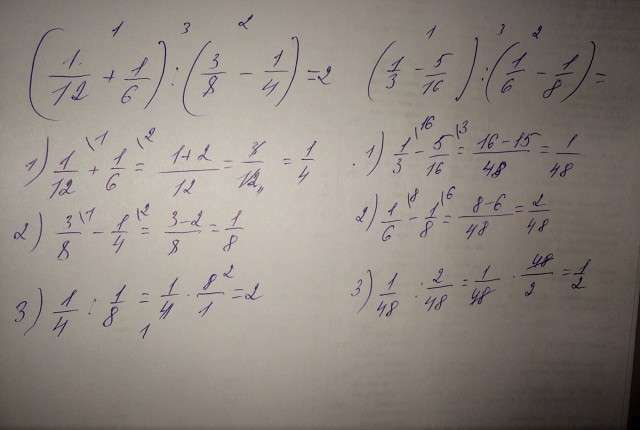 1 3 2
(1/12 + 1/6) : (3/8 - 1/4) = 2
1) 1/12 \1 + 1/6 \2 = 1+2/12 = 3/12 = 1/4
2) 3/8 \1 - 1/4 \2 = 3-2/8 = 1/8
3) 1/4 : 1/8 = 1/4 · 8/1 = 2
1 2
1 3 2
(1/3 - 5/16) : (1/6 - 1/8) =
1) 1/3 \16 - 5/16 \3 = 16-15/48 = 1/48
2) 1/6 \8 - 1/8 \6 = 8-6/48 = 2/48
3) 1/48 : 2/48 = 1/48 · 48/2 = 1/2